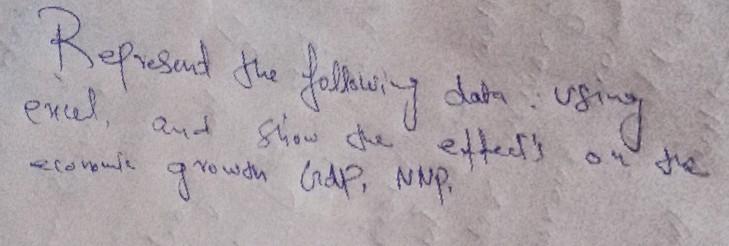 Represent the following data : using
excel, and show the effects on the
economic growth GdP, NNP.